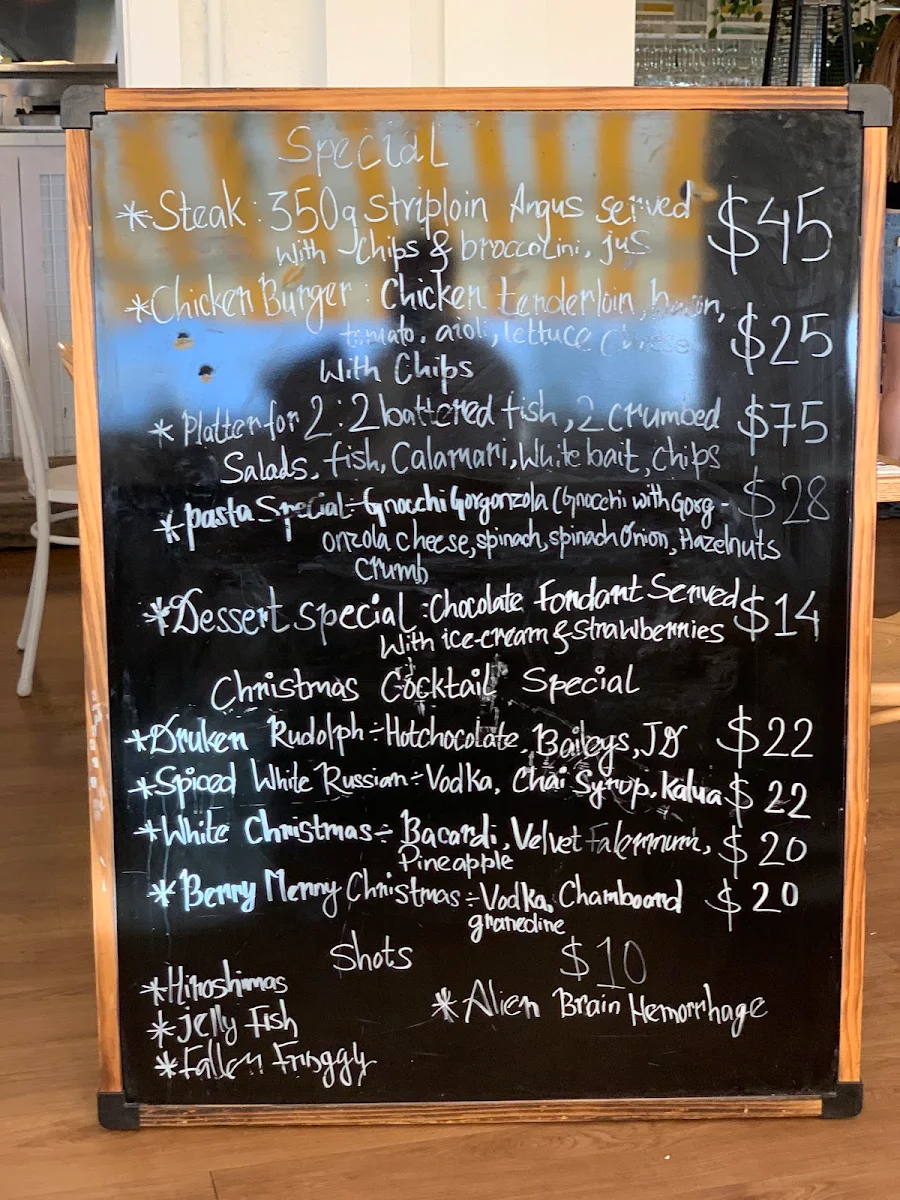 Special
*Steak: 350g Striploin Angus served $45
With Chips & broccolini, jus
*Chicken Burger: Chicken tenderloin, bacon, $25
tomato, aioli, lettuce Cheese
With Chips
*Platter for 2: 2 battered fish, 2 crumbed $75
Salads, fish, Calamari, White bait, chips
*pasta Special:- Gnocchi Gorgonzola (Gnocchi with Gorg- $28
onzola cheese, spinach, spinach Onion, Hazelnuts
Crumb
*Dessert special: Chocolate Fondant Served $14
With ice-cream & Strawberries
Christmas Cocktail Special
*Druken Rudolph ÷ Hotchocolate, Baileys, JD $22
*Spiced White Russian ÷ Vodka, Chai Syrup, kalua $22
*White Christmas ÷ Bacardi, Velvet Falernum, $20
Pineapple
*Berry Merry Christmas ÷ Vodka, Chamboard $20
granedine
Shots $10
*Hiroshimas
*Alien Brain Hemorrhage
*jelly Fish
*Fallen Froggy